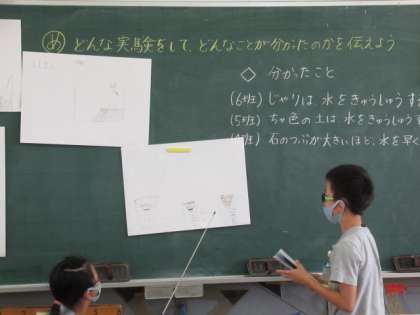 め どんな実験をして、どんなことが分かったのかを伝えよう
◇ 分かったこと
(6班) じゃりは 水をきゅうしゅうす
(5班) ちゃ色の土は 水をきゅうしゅうす
石のつぶが大きいほど、水を早く